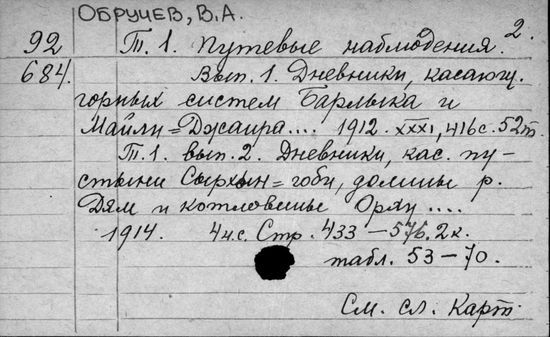 ОБРУЧЕВ, В.А.
2.
92 Т. 1. Путевые наблюдения.
684. Вып. 1. Дневники, касающ.
горных систем Барлыка и
Майли=Джаира.... 1912. XXXI, 416 с. 52 т.
Т. 1. вып. 2. Дневники, кас. пу-
стыни Сырхын=гоби, долины р.
Дям и котловины Орху ....
1914. 4 н.с. Стр. 433-576. 2 к.
табл. 53-70.
См. сл. карт.